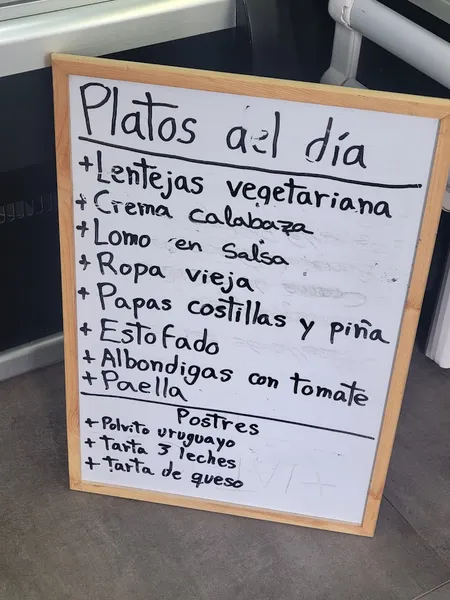 Platos del día
+Lentejas vegetariana
+Crema calabaza
+Lomo en salsa
+Ropa vieja
+Papas costillas y piña
+Estofado
+Albondigas con tomate
+Paella
Postres
+Polvito uruguayo
+tarta 3 leches
+tarta de queso